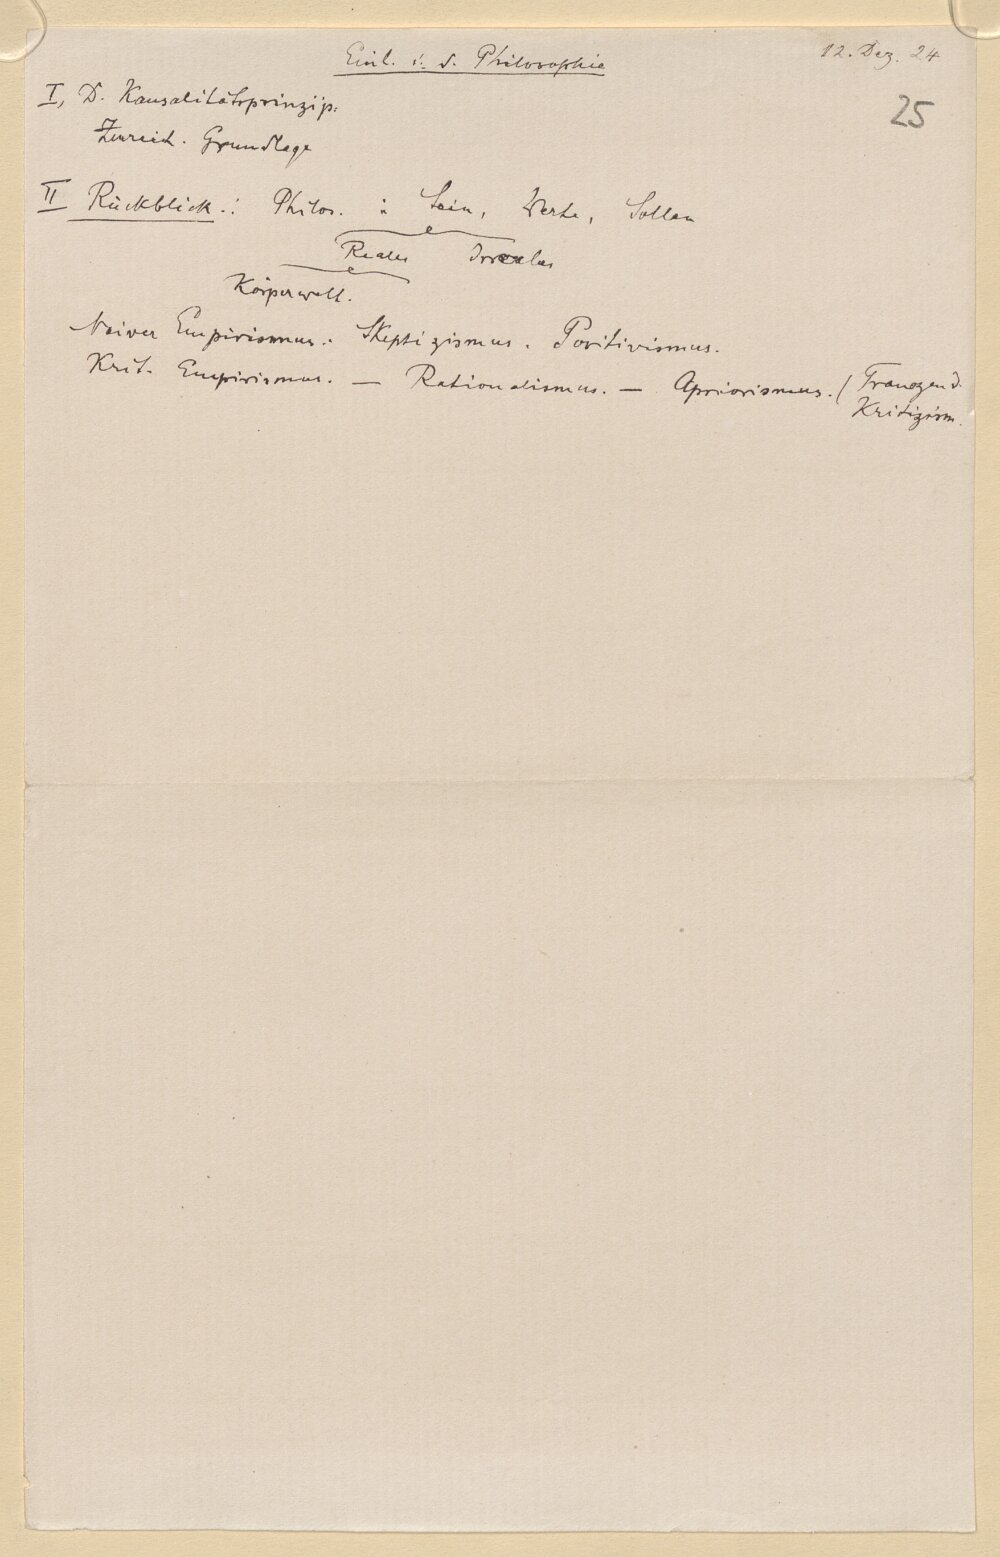 Einl. i. d. Philosophie
12. Dez. 24
25
I, D. Kausalitätsprinzip.
Zureich. Grundlage
II Rückblick.: Philos. : Sein, Werte, Sollen
Reales Irreales
Körperwelt.
Naiver Empirismus. Skeptizismus. Positivismus.
Krit. Empirismus. — Rationalismus. — Apriorismus. (Transzend.
Kritizism.